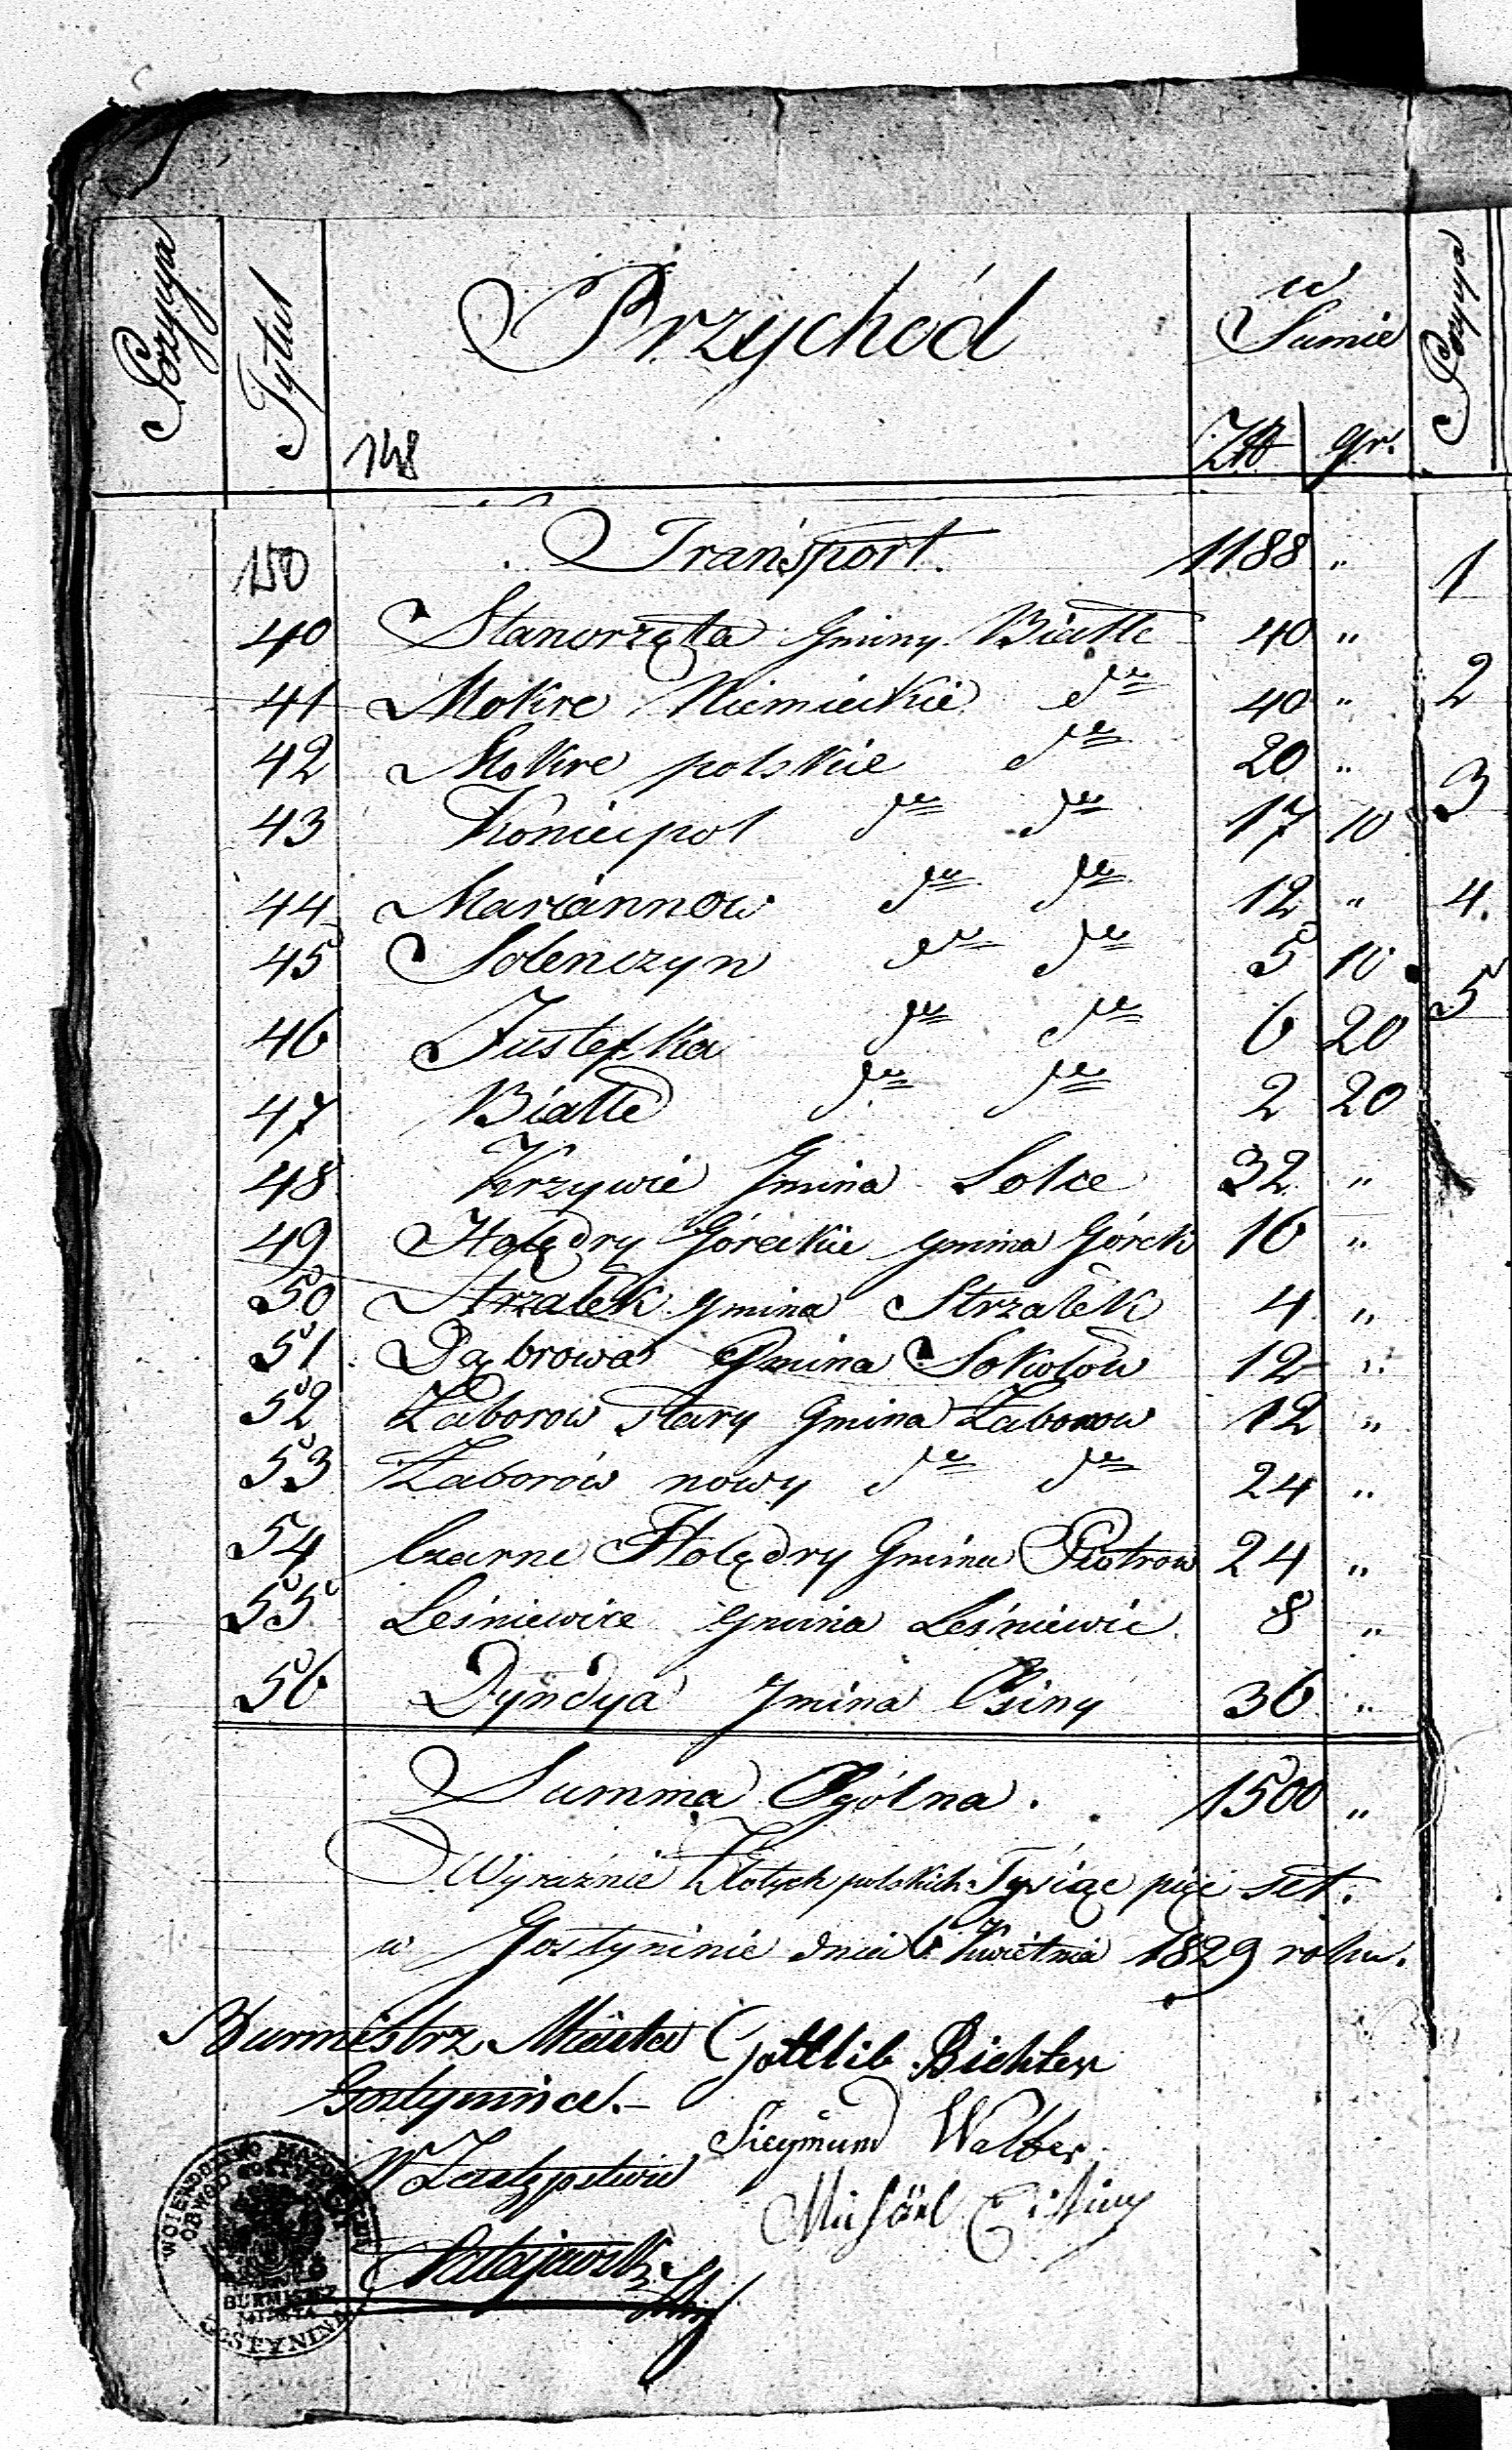 Pozycya Tytuł Przychód w Sumie Pozycya
148 Złp gr.
150 Transport. 1188 " 1
40 Stanorzęta Gminy Białłe 40 "
41 Mokre Niemieckie dto 40 " 2
42 Mokre polskie dto 20 "
43 Koniecpol dto dto 17 10 3
44 Mariannow dto dto 12 " 4.
45 Solenczyn dto dto 5 10
46 Justefka dto dto 6 20 5
47 Białłe dto dto 2 20
48 Krzywie Gmina Solce 32 "
49 Holędry Góreckie gmina Górek 16 "
50 Strzałek gmina Strzałek 4 "
51 Dąbrowa Gmina Sokołów 12 "
52 Zaborow stary Gmina Zaborow 12 "
53 Zaborów nowy dto dto 24 "
54 Czarne Holędry Gmina Piotrow 24 "
55 Leśniewice Gmina Leśniewic 8 "
56 Dyndya gmina Osiny 36 "
Summa Ogólna. 1500 "
Wyraźnie Złotych polskich Tysiąc pięć set.
w Gostyninie dnia 6 Kwietnia 1829 roku.
Burmistrz Miasta Gottlib Richter
Gostynina.
Siegmund Walter
W Zastępstwie
Michael
WOIEWODZTWO MAZOWIECKIE
OBWOD GOSTYNSKI
BURMISTRZ
MIASTA
GOSTYNINA